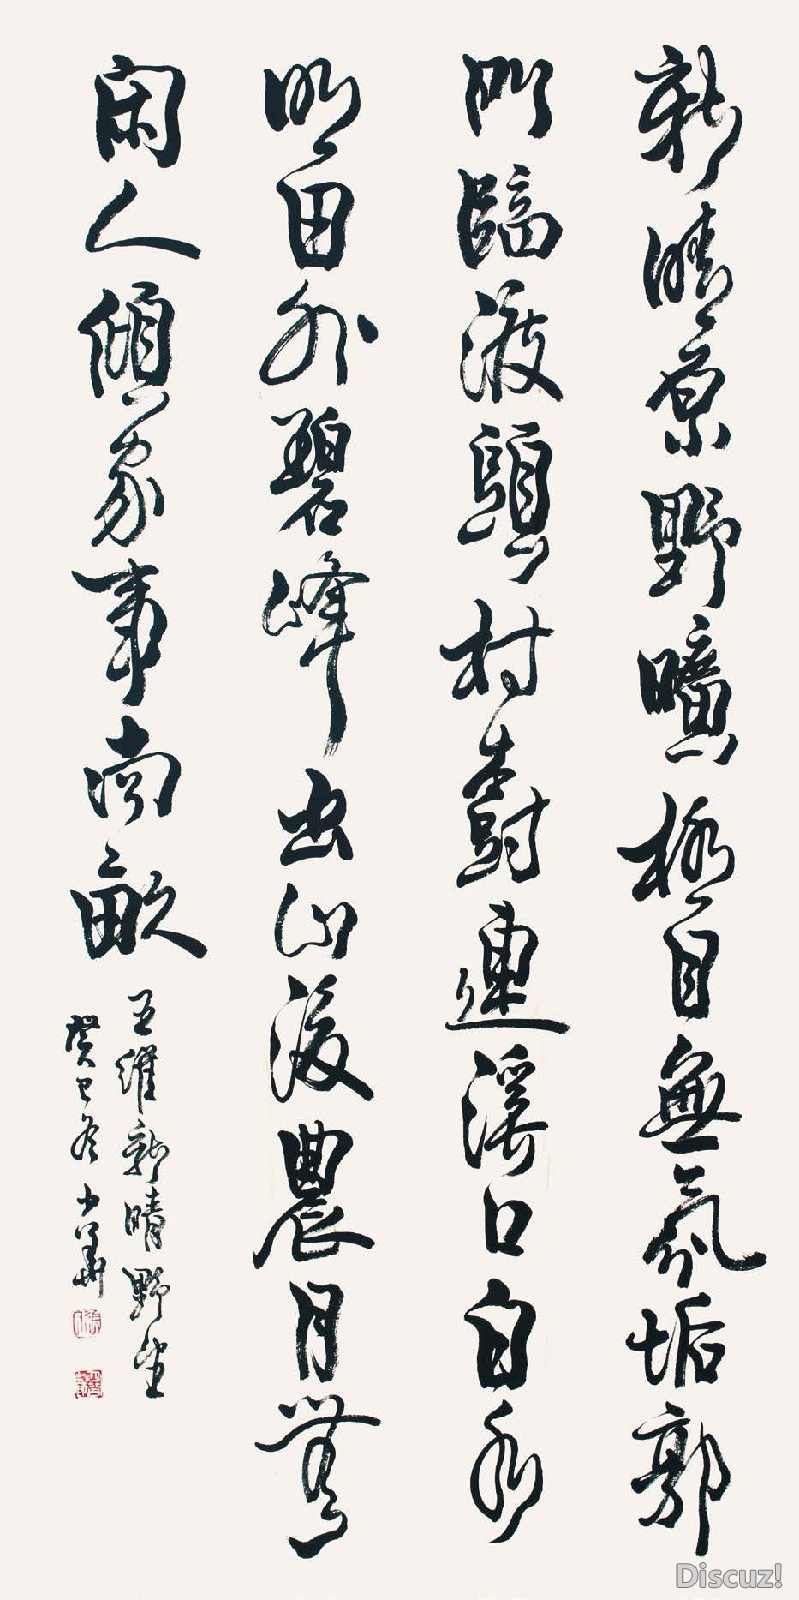 新晴原野曠極目無氛垢郭
門臨渡頭村樹連溪口白水
明田外碧峰出山後農月無
閑人傾家事南畝
王維新晴野望
癸巳冬少華
Discuz!